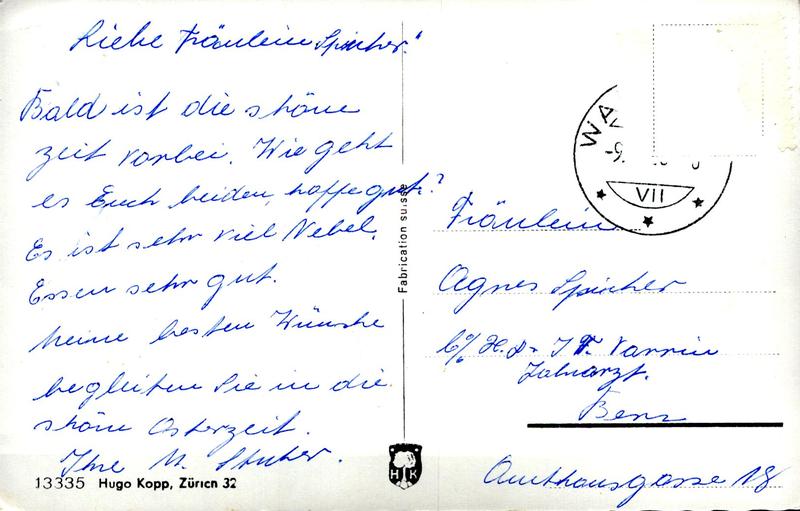 Liebe Fräulein Spicher!
Bald ist die schöne
zeit vorbei. Wie geht
es Euch beiden, hoffe gut?
Es ist sehr viel Nebel.
Essen sehr gut.
Meine besten Wünsche
begleiten Sie in die
schöne Osterzeit.
Ihre M. Stuher.
13335 Hugo Kopp, Zürich 32
Fabrication suisse
H K
WA
-9.
VII
Fräulein
Agnes Spicher
c/o H. Dr.
Zahnarzt.
Bern
Amthausgasse 18